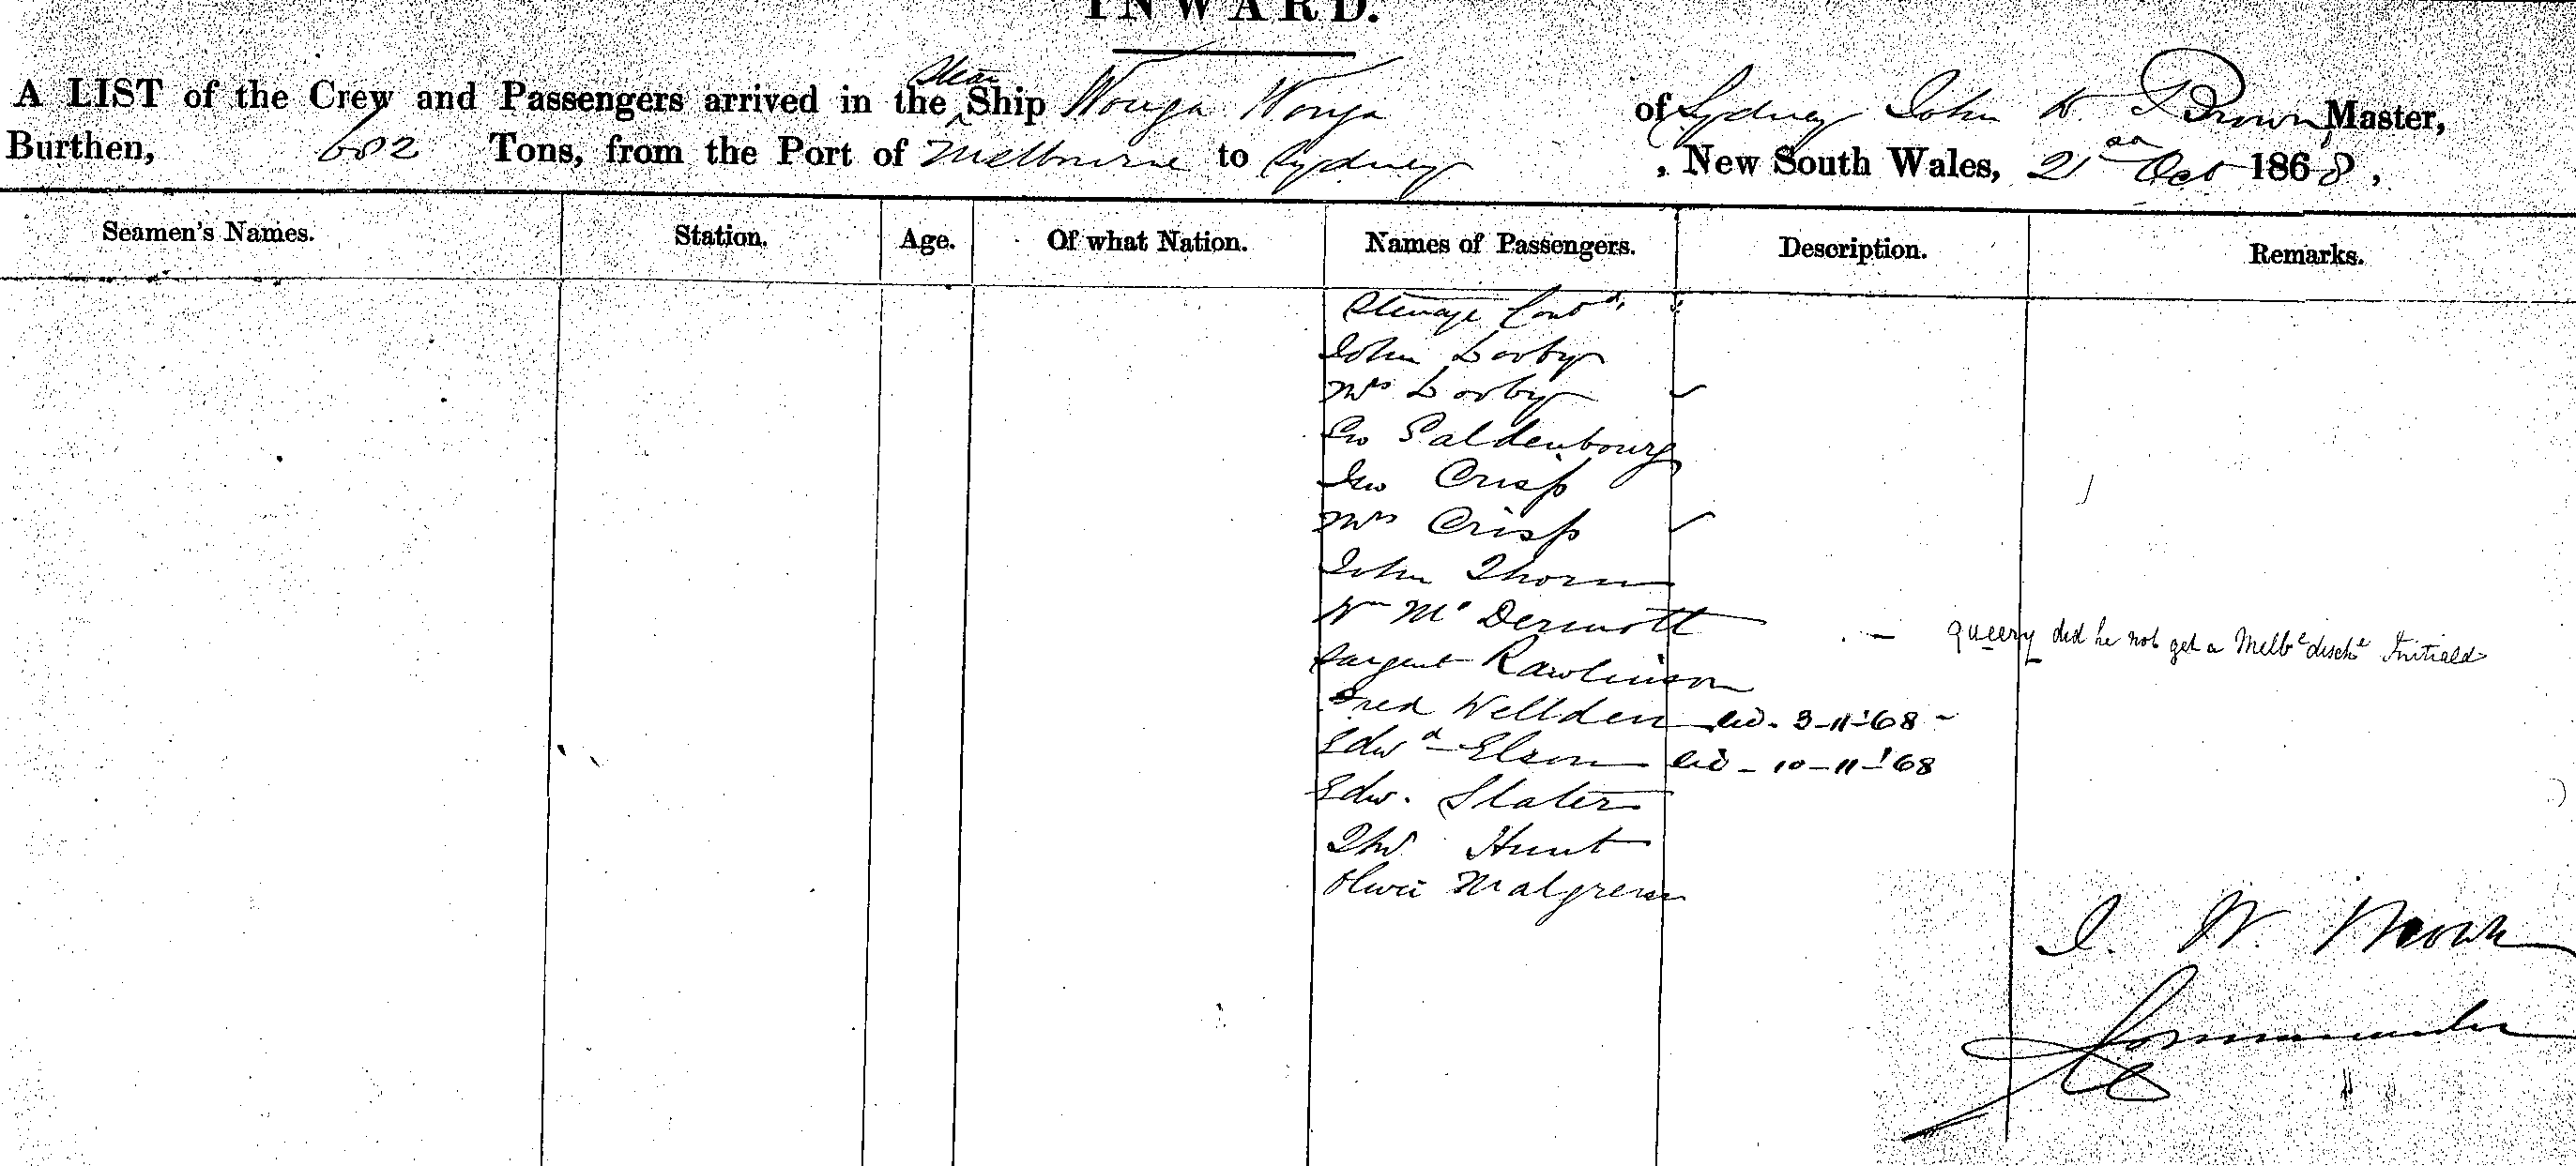 INWARD.
A LIST of the Crew and Passengers arrived in the Steam Ship Wonga Wonga of Sydney John W. Brown, Master,
Burthen, 682 Tons, from the Port of Melbourne to Sydney, New South Wales, 21st Oct 1868,
Seamen's Names. Station. Age. Of what Nation. Names of Passengers. Description. Remarks.
Steerage Contd.
John Dorby
Mrs Dorby
Geo Paldenbourg
Geo Crisp
Mrs Crisp
John Thorn
Wm McDermott — queery did he not get a Melbe dische Initiald
Sargent Rawlinson
Fred Wellden 3-11-'68
Edwd Elson 10-11-'68
Edw. Slater
Hunt
Malgren
J. W. Brown
Commander